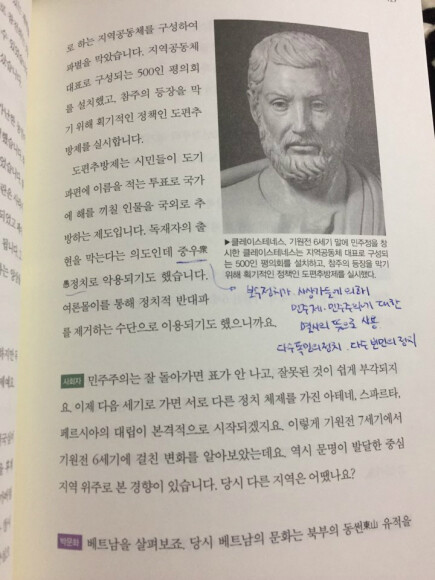 로 하는 지역공동체를 구성하여
파벌을 막았습니다. 지역공동체
대표로 구성되는 500인 평의회
를 설치했고, 참주의 등장을 막
기 위해 획기적인 정책인 도편추
방제를 실시합니다.
도편추방제는 시민들이 도기
파편에 이름을 적는 투표로 국가
에 해를 끼칠 인물을 국외로 추
방하는 제도입니다. 독재자의 출
현을 막는다는 의도인데 중우衆
愚정치로 악용되기도 했습니다.
여론몰이를 통해 정치적 반대파
를 제거하는 수단으로 이용되기도 했으니까요.
▶클레이스테네스, 기원전 6세기 말에 민주정을 창
시한 클레이스테네스는 지역공동체 대표로 구성되
는 500인 평의회를 설치하고, 참주의 등장을 막기
위해 획기적인 정책인 도편추방제를 실시했다.
보수정치가 사상가들에 의하
민주제·민주주의가 대한
멸시의 뜻으로 사용
다수 의정치 다수 의정치
사회자 민주주의는 잘 돌아가면 표가 안 나고, 잘못된 것이 쉽게 부각되지
요. 이제 다음 세기로 가면 서로 다른 정치 체제를 가진 아테네, 스파르타,
페르시아의 대립이 본격적으로 시작되겠지요. 이렇게 기원전 7세기에서
기원전 6세기에 걸친 변화를 알아보았는데요. 역시 문명이 발달한 중심
지역 위주로 본 경향이 있습니다. 당시 다른 지역은 어땠나요?
박문화 베트남을 살펴보죠. 당시 베트남의 문화는 북부의 동썬東山 유적을